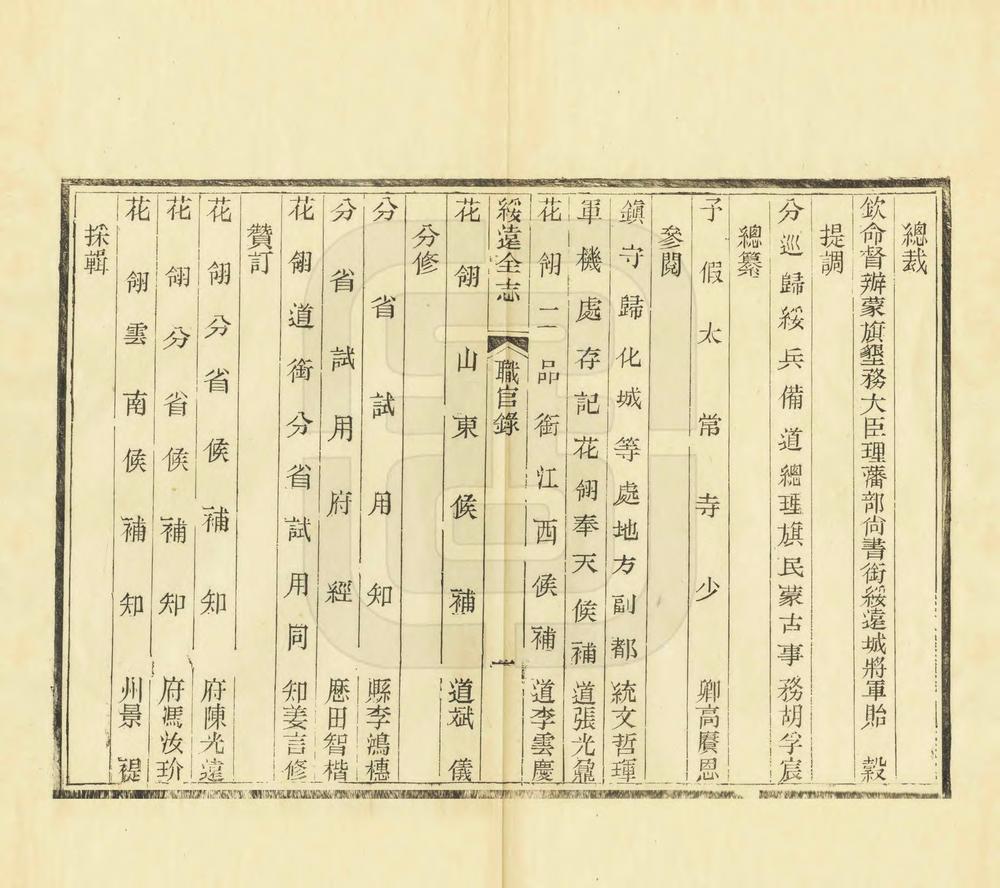 總裁
欽命督辦蒙旗墾務大臣理藩部尚書銜綏遠城將軍貽穀
提調
分巡歸綏兵備道總理旗民蒙古事務胡孚宸
總纂
予假太常寺少卿高賡恩
參閱
鎮守歸化城等處地方副都統文哲琿
軍機處存記花翎奉天候補道張光鼐
花翎二品銜江西候補道李雲慶
綏遠全志 職官錄 一
花翎山東候補道斌儀
分修
分省試用知縣李鴻橞
分省試用府經歷田智楷
花翎道銜分省試用同知姜言修
贊訂
花翎分省候補知府陳光遠
花翎分省候補知府馮汝玠
花翎雲南候補知州景禔
採輯